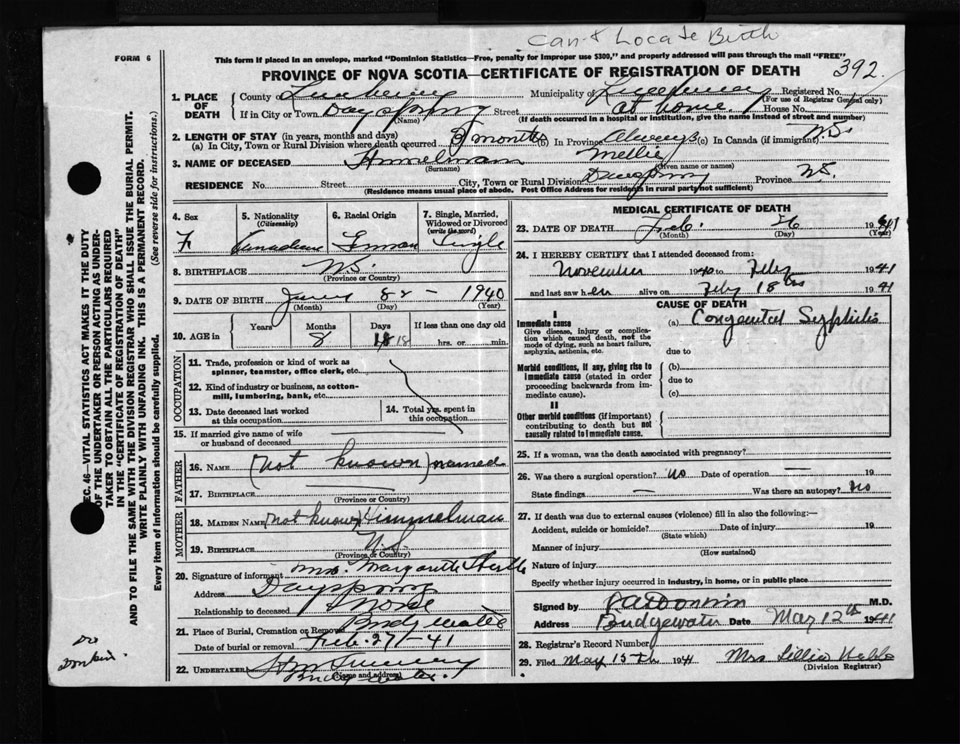 Can't Locate Birth
FORM 6
This form if placed in an envelope, marked "Dominion Statistics—Free, penalty for improper use $300," and properly addressed will pass through the mail "FREE"
PROVINCE OF NOVA SCOTIA—CERTIFICATE OF REGISTRATION OF DEATH 392.
1. PLACE OF DEATH County of Lunenburg Municipality of Registered No.
(For use of Registrar General only)
If in City or Town Dayspring Street at home. House No.
(Name) (If death occurred in a hospital or institution, give the name instead of street and number)
2. LENGTH OF STAY (in years, months and days)
(a) In City, Town or Rural Division where death occurred 3 months (b) In Province Always (c) In Canada (if immigrant) N.S.
3. NAME OF DECEASED Himmelman Nellie
(Surname) (Given name or names)
RESIDENCE No. Street City, Town or Rural Division Dayspring Province N.S.
(Residence means usual place of abode. Post Office Address for residents in rural parts not sufficient)
4. Sex 5. Nationality (Citizenship) 6. Racial Origin 7. Single, Married, Widowed or Divorced (write the word)
F Canadian German Single
8. BIRTHPLACE N.S.
(Province or Country)
9. DATE OF BIRTH June 8 – 1940
(Month) (Day) (Year)
10. AGE in Years Months Days If less than one day old
8 18 18 hrs. or min.
OCCUPATION
11. Trade, profession or kind of work as spinner, teamster, office clerk, etc.
12. Kind of industry or business, as cotton-mill, lumbering, bank, etc.
13. Date deceased last worked at this occupation
14. Total yrs. spent in this occupation
15. If married give name of wife or husband of deceased
FATHER
16. NAME (not known) named
17. BIRTHPLACE
(Province or Country)
MOTHER
18. MAIDEN NAME (not known) Himmelman
19. BIRTHPLACE N.S.
(Province or Country)
20. Signature of informant Mrs. Margaret
Address Dayspring
Relationship to deceased Nurse
21. Place of Burial, Cremation or Removal Bridgewater
Date of burial or removal Feb. 27 – 41
22. UNDERTAKER
Bridgewater.
(Name and address)
MEDICAL CERTIFICATE OF DEATH
23. DATE OF DEATH Feb. 26 1941
(Month) (Day) (Year)
24. I HEREBY CERTIFY that I attended deceased from:
November 1940 to Feby 1941
and last saw her alive on Feby 18th 1941
CAUSE OF DEATH
I
Immediate cause (a) Congenital Syphilis
Give disease, injury or complication which caused death, not the mode of dying, such as heart failure, asphyxia, asthenia, etc.
due to
Morbid conditions, if any, giving rise to immediate cause (stated in order proceeding backwards from immediate cause).
(b)
due to
(c)
II
Other morbid conditions (if important) contributing to death but not causally related to immediate cause.
25. If a woman, was the death associated with pregnancy?
26. Was there a surgical operation? No Date of operation — 19
State findings — Was there an autopsy? No
27. If death was due to external causes (violence) fill in also the following:—
Accident, suicide or homicide? Date of injury 19
(State which)
Manner of injury
(How sustained)
Nature of injury
Specify whether injury occurred in industry, in home, or in public place
Signed by M.D.
Address Bridgewater Date Mar 12th 1941
28. Registrar's Record Number
29. Filed Mar 15th 1941 Mrs Lillian
(Division Registrar)
SEC. 46—VITAL STATISTICS ACT MAKES IT THE DUTY OF THE UNDERTAKER OR PERSON ACTING AS UNDERTAKER TO OBTAIN ALL THE PARTICULARS REQUIRED IN THE "CERTIFICATE OF REGISTRATION OF DEATH" AND TO FILE THE SAME WITH THE DIVISION REGISTRAR WHO SHALL ISSUE THE BURIAL PERMIT.
WRITE PLAINLY WITH UNFADING INK. THIS IS A PERMANENT RECORD.
Every item of information should be carefully supplied. (See reverse side for instructions.)